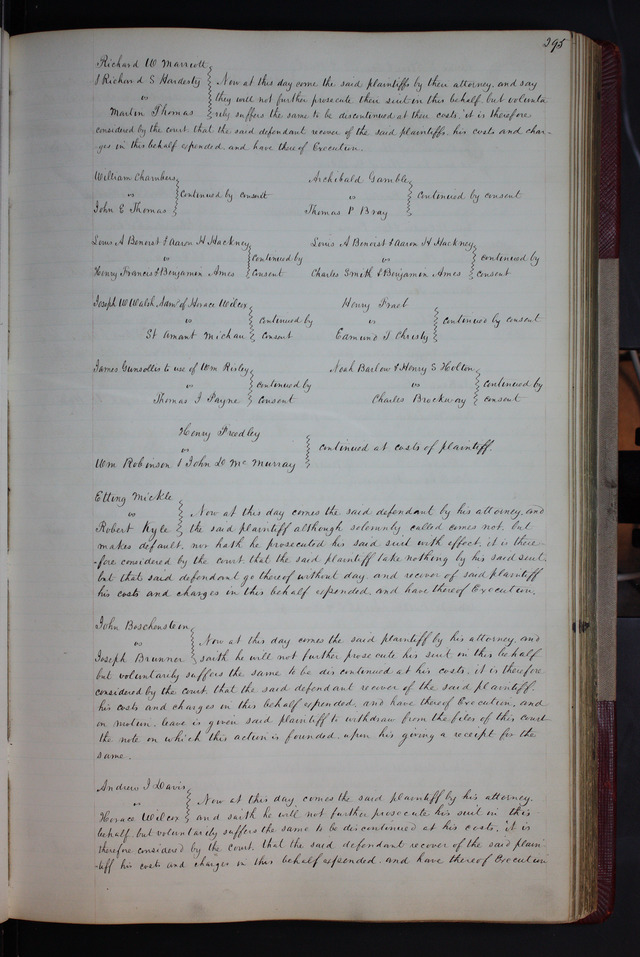 295
Richard W Marriott
& Richard S Hardesty
vs
Martin Thomas
Now at this day come the said plaintiffs by their attorney, and say
they will not further prosecute their suit in this behalf but volunta
rily suffers the same to be discontinued at their costs, it is therefore
considered by the court that the said defendant recover of the said plaintiffs his costs and char-
ges in this behalf expended and have thereof Execution.
William Chambers
vs
John E Thomas
continued by consent
Archibald Gamble
vs
Thomas P Bray
continued by consent
Louis A Benoist & Aaron H Hackney
vs
Henry Francis & Benjamin Ames
continued by
consent
Louis A Benoist & Aaron H Hackney
vs
Charles Smith & Benjamin Ames
continued by
consent
Joseph W Walsh Admr of Horace Wilcox
vs
St Amant Michau
continued by
consent
Henry
vs
Edmund T Christy
continued by consent
James Gunsollis to use of Wm Risley
vs
Thomas J Payne
continued by
consent
Noah Barlow & Henry S Holton
vs
Charles Brockway
continued by
consent
Henry Freedley
vs
Wm Robinson & John D McMurray
continued at costs of plaintiff.
Etting Mickle
vs
Robert Kyle
Now at this day comes the said defendant by his attorney, and
the said plaintiff although solemnly called comes not, but
makes default, nor hath he prosecuted his said suit with effect, it is there-
-fore considered by the court that the said plaintiff take nothing by his said suit
but that said defendant go thereof without day and recover of said plaintiff
his costs and charges in this behalf expended and have thereof Execution.
John Boschenstein
vs
Joseph Brunner
Now at this day comes the said plaintiff by his attorney, and
saith he will not further prosecute his suit in this behalf
but voluntarily suffers the same to be discontinued at his costs, it is therefore
considered by the court that the said defendant recover of the said plaintiff
his costs and charges in this behalf expended, and have thereof Execution, and
on motion leave is given said plaintiff to withdraw from the files of this court
the note on which this action is founded upon his giving a receipt for the
same.
Andrew J Davis
vs
Horace Wilcox
Now at this day comes the said plaintiff by his attorney,
and saith he will not further prosecute his suit in this
behalf but voluntarily suffers the same to be discontinued at his costs, it is
therefore considered by the court that the said defendant recover of the said plain-
-tiff his costs and charges in this behalf expended and have thereof Execution